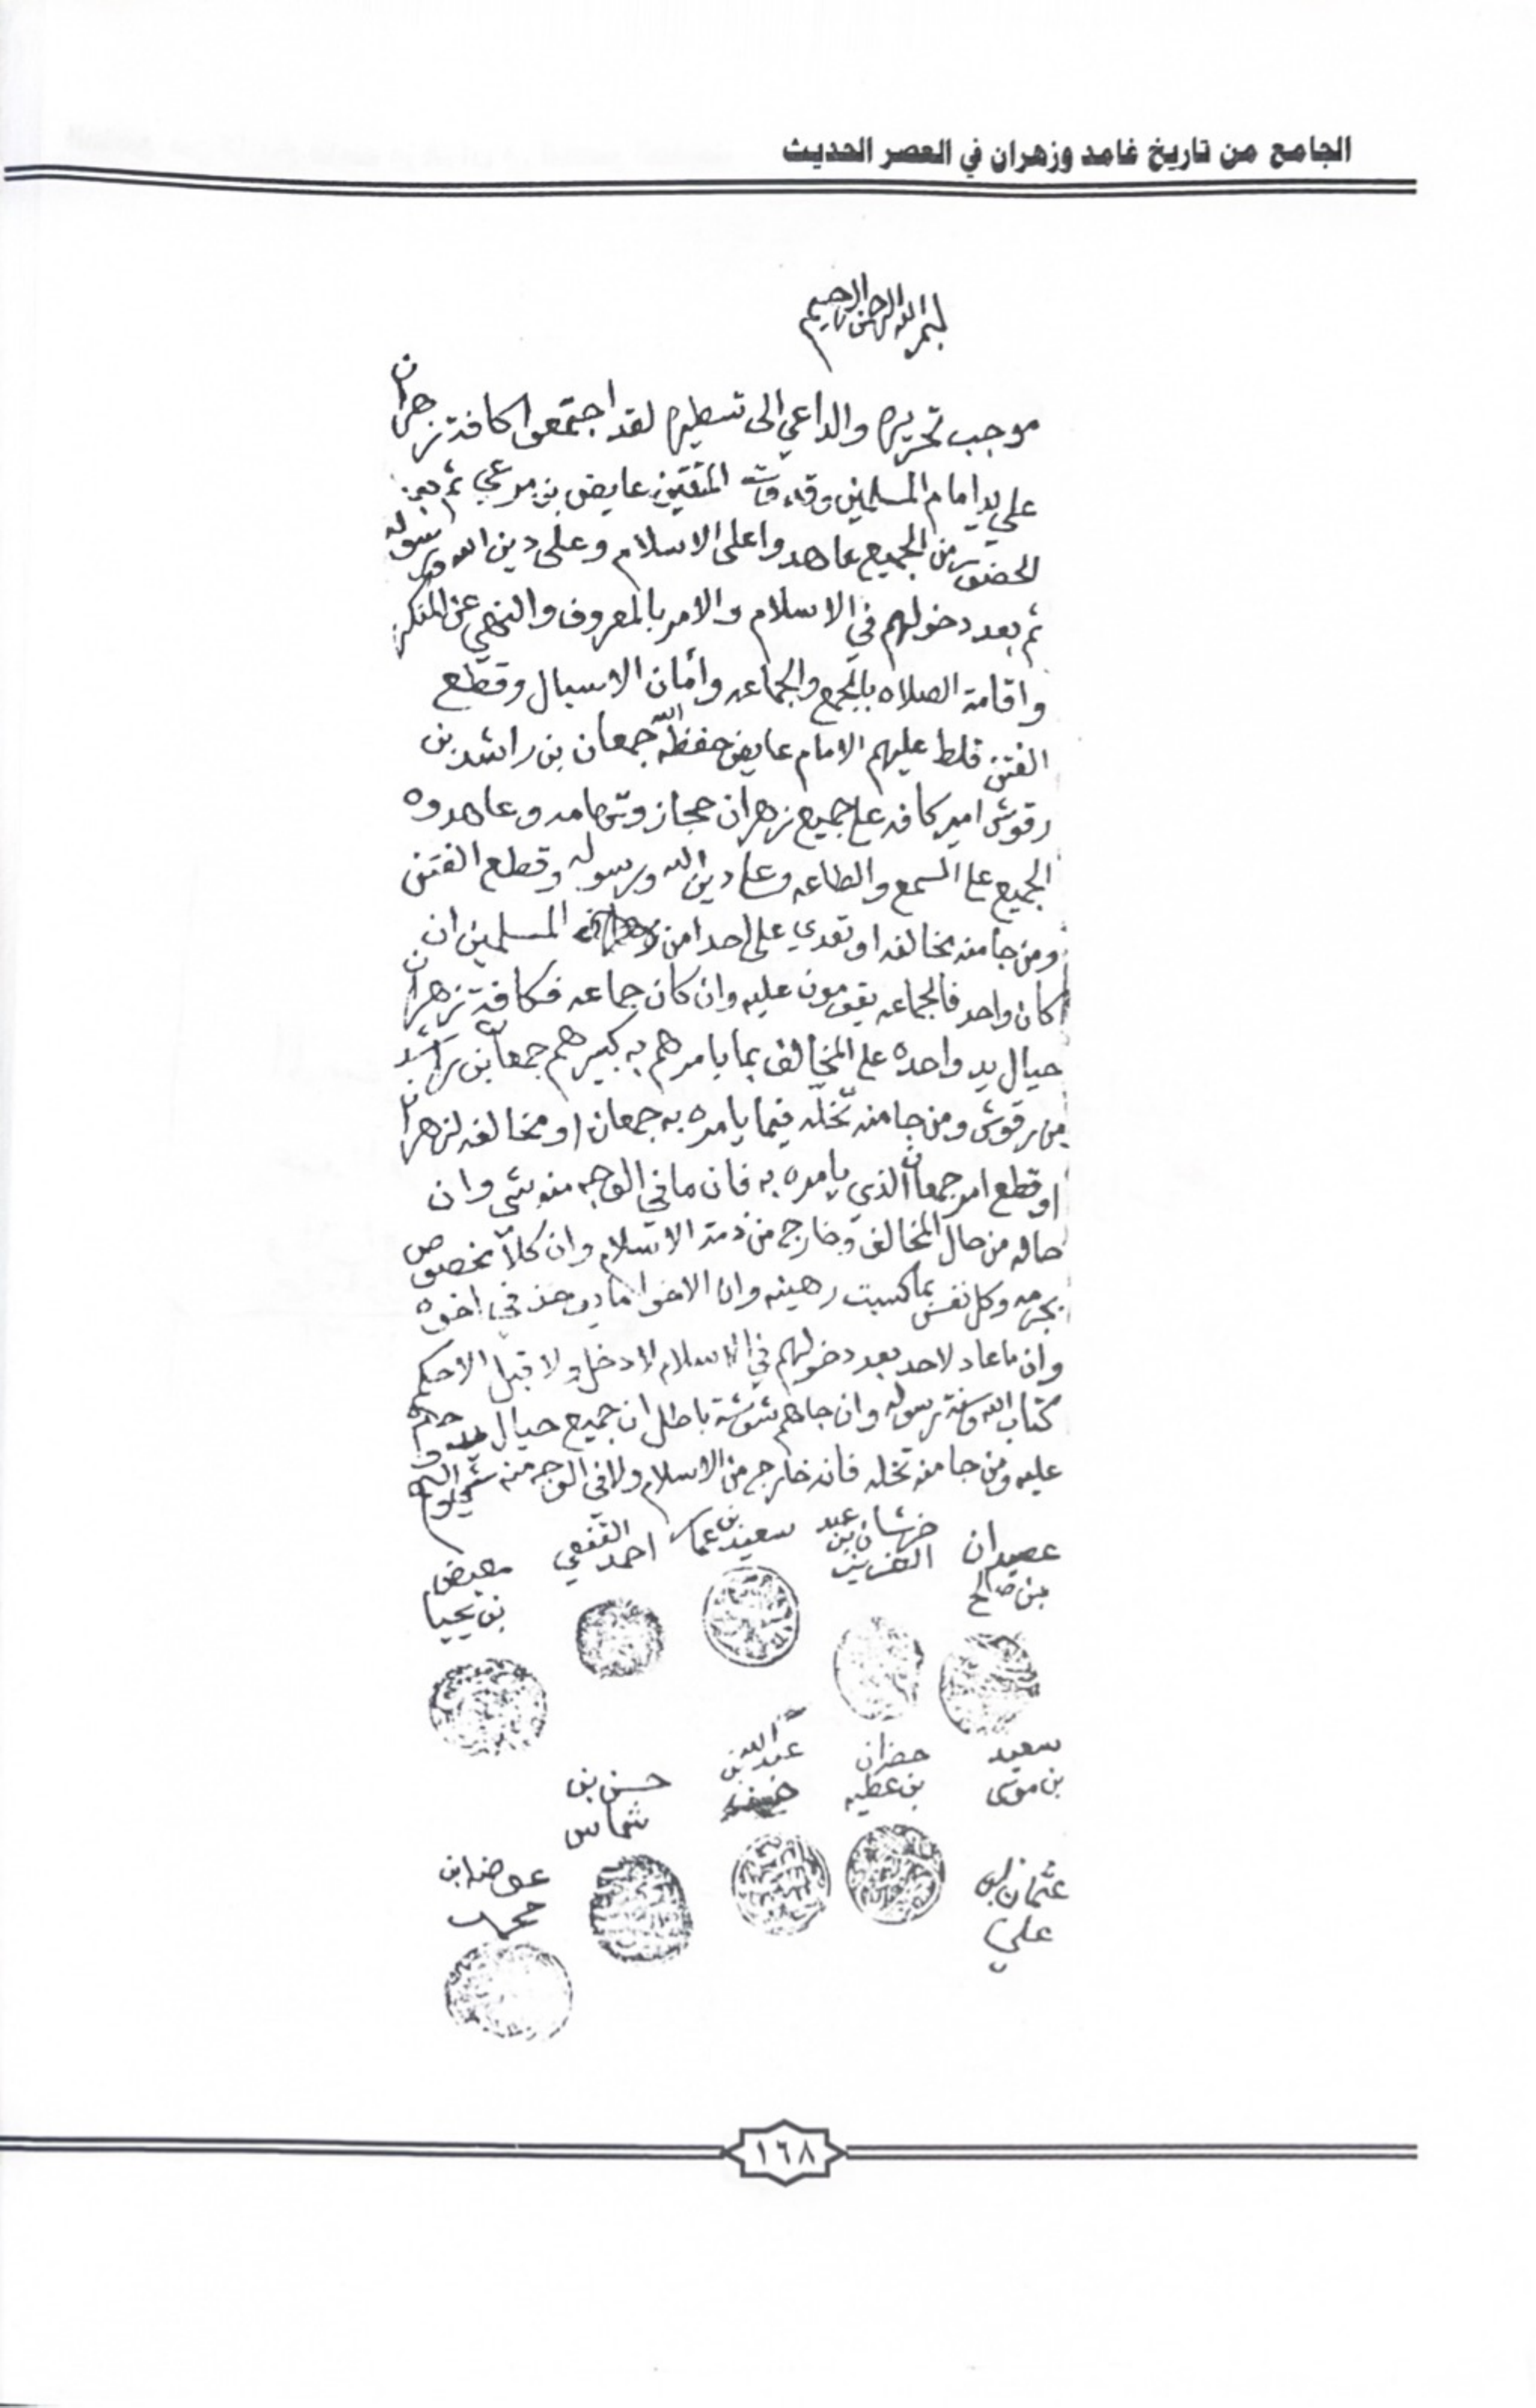 الجامع من تاريخ غامد وزهران في العصر الحديث
بسم الله الرحمن الرحيم
موجب تحريره والداعي الى تسطيره لقد اجتمعوا كافة زهران
على يد امام المسلمين المتقين عايض بن مرعي ثم بعد
الحضور من الجميع عاهدوا على الاسلام وعلى دين الله ورسوله
ثم بعد دخولهم في الاسلام والامر بالمعروف والنهي عن المنكر
واقامة الصلاه بالجمع والجماعه وأمان الاسبال وقطع
الفتن فلط عليهم الامام عايض حفظه الله جمعان بن راشد بن
رقوش امير كافه على جميع زهران حجاز وتهامه وعاهدوه
الجميع على السمع والطاعه وعلى دين الله ورسوله وقطع الفتن
ومن جا منه مخالفه او تعدي على احدا من المسلمين ان
كان واحد فالجماعه يقومون عليه وان كان جماعه فكافة زهران
حيال يد واحده على المخالف بما يامرهم به كبيرهم جمعان بن راشد
بن رقوش ومن جا منه تخله فيما يامره به جمعان او مخالفه لزهران
او قطع امر جمعان الذي يامره به فان ما في الوجه منه شي وان
حاله من حال المخالف وخارج من ذمة الاسلام وان كلا مخصوص
بجرمه وكل نفس بما كسبت رهينه وان الاخو ما يوخذ في اخوه
وان ما عاد لاحد بعد دخولهم في الاسلام لا دخل ولا قبل الا حكم
كتاب الله وسنة رسوله وان جاهم باطل ان جميع حيال يد واحده
عليه ومن جا منه تخله فانه خارج من الاسلام ولا في الوجه منه شي
عصيدان
بن صالح
خرشان بن عبد
العزيز
سعيد بن
احمد
معيض
بن يحيا
سعيد
بن موسى
حضران
بن عطيه
عبد الله بن
حسن بن
شماس
عثمان ابن
علي
عوض ابن
محمد
١٦٨